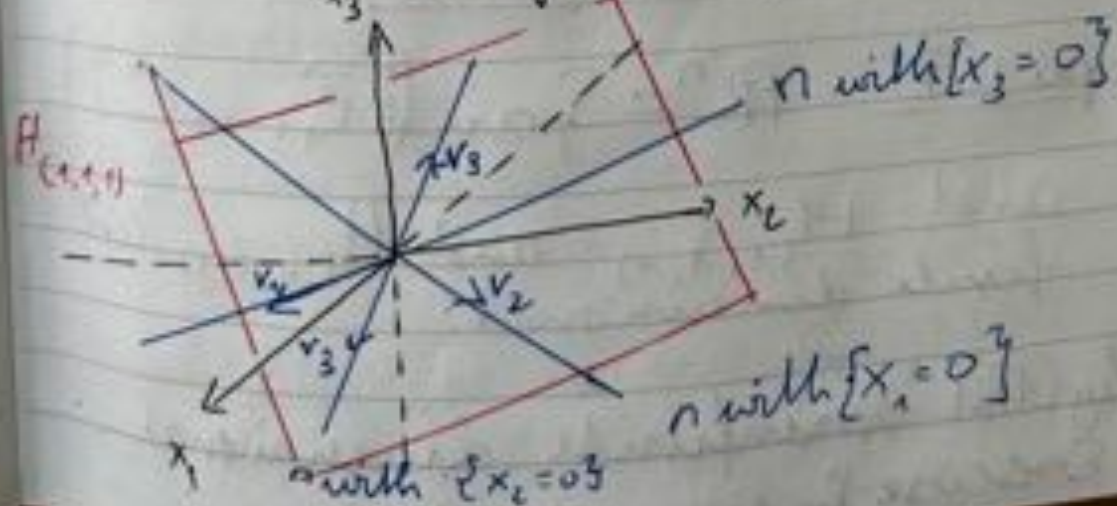 x₃
∩ with {x₃ = 0}
H₍₁,₁,₁₎
v₃
x₂
v₁
v₂
v₃
∩ with {x₁ = 0}
x₁
∩ with {x₂ = 0}